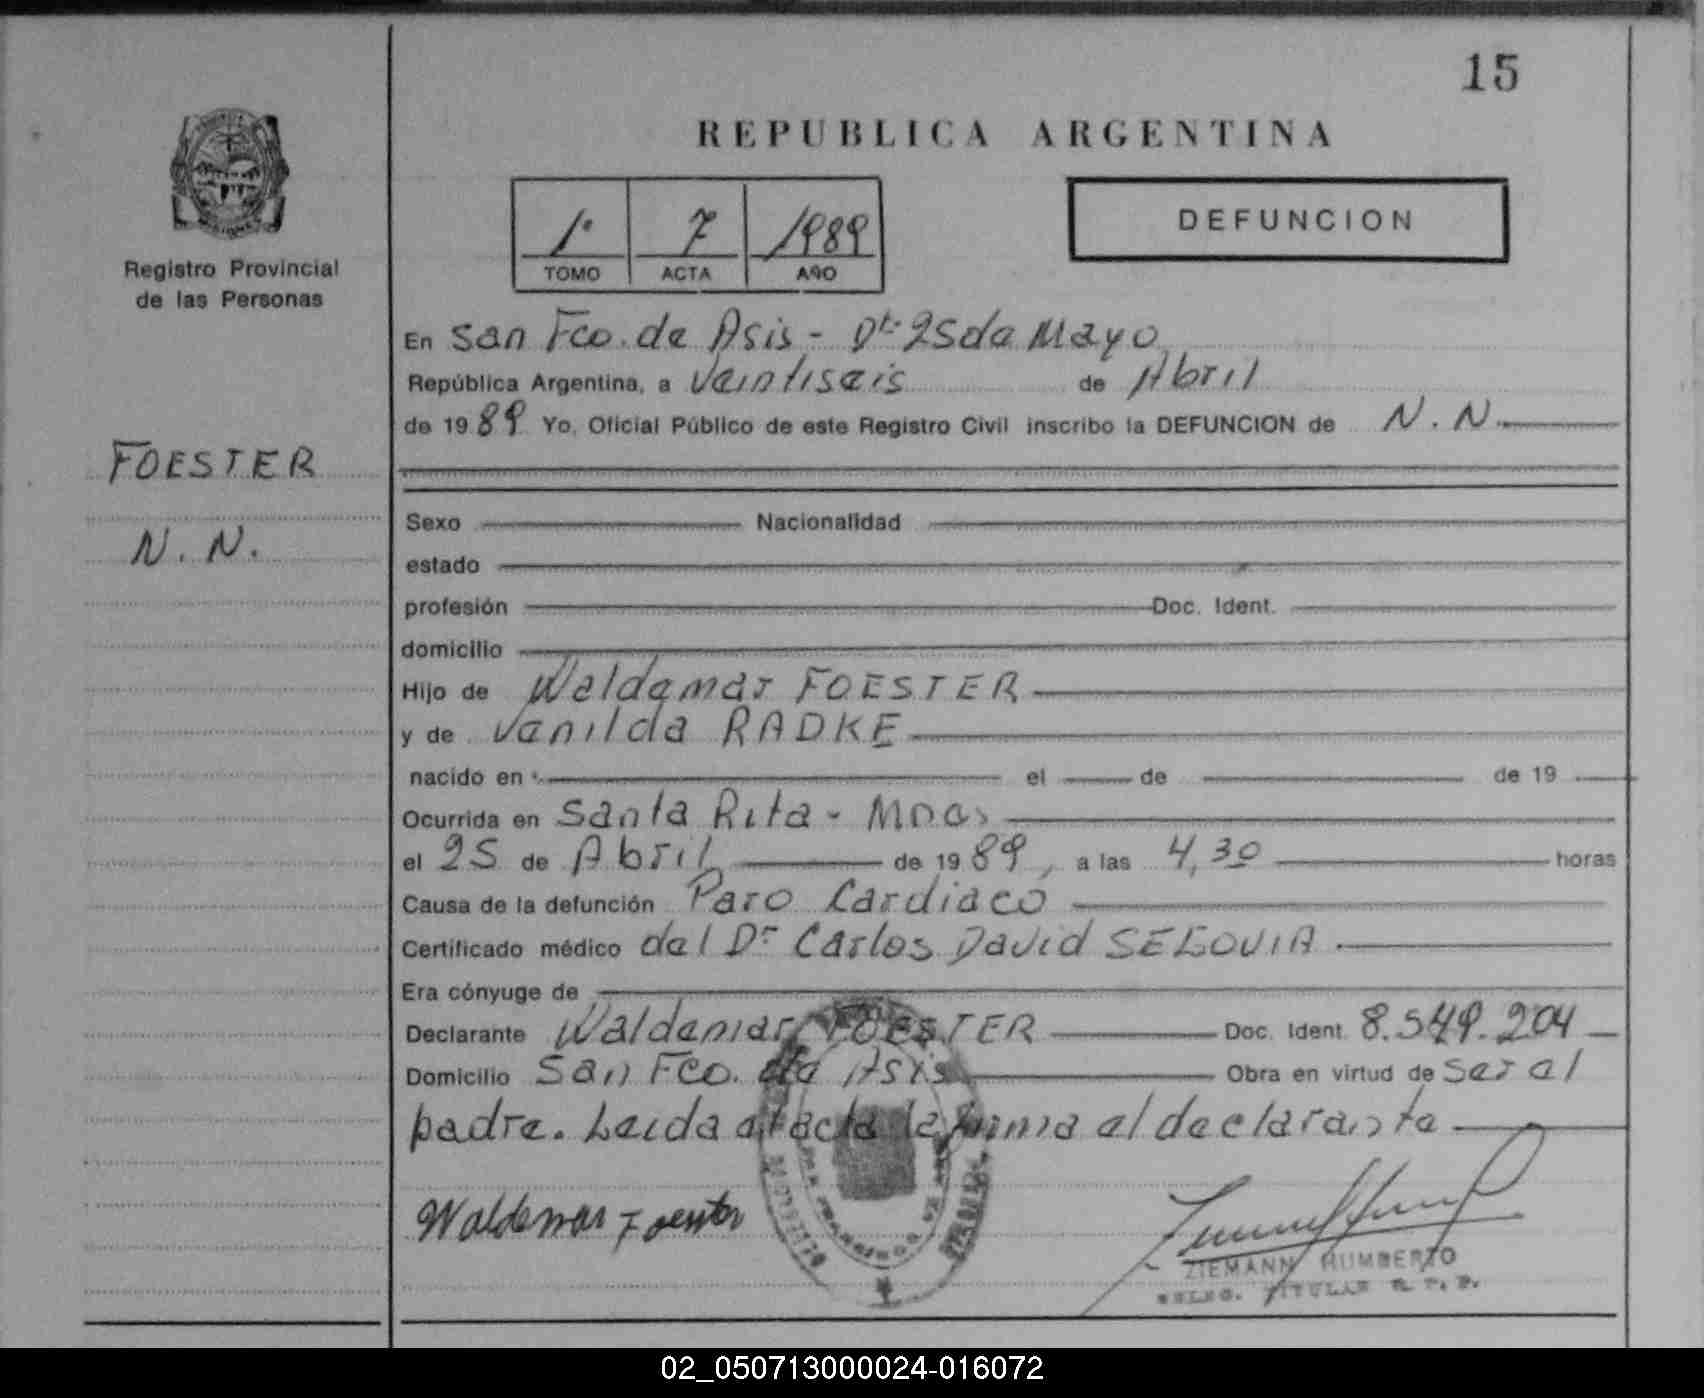 15
REPUBLICA ARGENTINA
1º 7 1989
TOMO ACTA AÑO
DEFUNCION
Registro Provincial
de las Personas
FOESTER
N. N.
En San Fco. de Asis - Dto 25 de Mayo
República Argentina, a veintiseis de Abril
de 1989 Yo, Oficial Público de este Registro Civil inscribo la DEFUNCION de N. N.
Sexo Nacionalidad
estado
profesión Doc. Ident.
domicilio
Hijo de Waldemar FOESTER
y de Vanilda RADKE
nacido en el de de 19
Ocurrida en Santa Rita - Mnes
el 25 de Abril de 1989, a las 4,30 horas
Causa de la defunción Paro Cardiaco
Certificado médico del Dr Carlos David SEGOVIA
Era cónyuge de
Declarante Waldemar FOESTER Doc. Ident. 8.549.204
Domicilio San Fco. de Asis Obra en virtud de ser al
padre. Leida el acta la firma el declarante
Waldemar Foester
ZIEMANN HUMBERTO
TITULAR R. P. P.
02_050713000024-016072